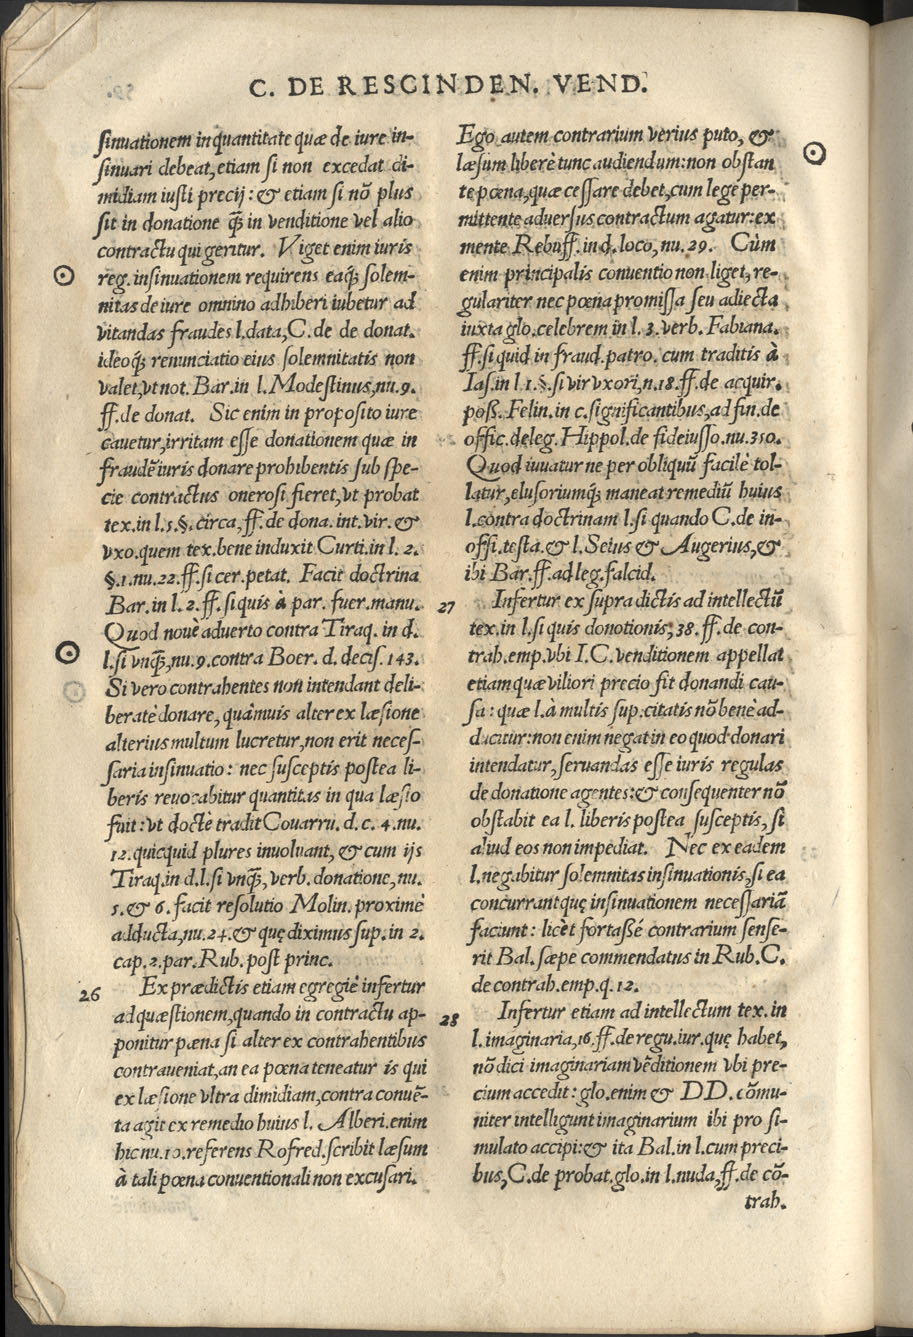 C. DE RESCINDEN. VEND.
ſinuationem in quantitate quæ de iure in-
ſinuari debeat, etiam ſi non excedat di-
midiam iuſti precij: & etiam ſi nõ plus
ſit in donatione q̃ in venditione vel alio
contractu qui geritur. Viget enim iuris
reg. inſinuationem requirens eaq́ ſolem-
nitas de iure omnino adhiberi iubetur ad
vitandas fraudes l.data, C. de de donat.
ideoq́ renunciatio eius ſolemnitatis non
valet, vt not. Bar. in l. Modeſtinus, nu. 9.
ff. de donat. Sic enim in propoſito iure
cauetur, irritam eſſe donationem quæ in
fraudẽ iuris donare prohibentis ſub ſpe-
cie contractus oneroſi fieret, vt probat
tex. in l. 5. §. circa, ff. de dona. int. vir. &
vxo. quem tex. bene induxit Curti. in l. 2.
§. 1. nu. 22. ff. ſi cer. petat. Facit doctrina
Bar. in l. 2. ff. ſi quis à par. fuer. manu.
Quod nouè aduerto contra Tiraq. in d.
l. ſi vnq̃, nu. 9. contra Boer. d. deciſ. 143.
Si vero contrahentes non intendant deli-
beratè donare, quàmuis alter ex læſione
alterius multum lucretur, non erit neceſ-
ſaria inſinuatio: nec ſuſceptis poſtea li-
beris reuocabitur quantitas in qua læſio
fuit: vt doctè tradit Couarru. d. c. 4. nu.
12. quicquid plures inuoluant, & cum ijs
Tiraq. in d. l. ſi vnq̃, verb. donatione, nu.
5. & 6. facit reſolutio Molin. proximè
adducta, nu. 24. & quę diximus ſup. in 2.
cap. 2. par. Rub. poſt princ.
26 Ex prædictis etiam egregiè infertur
ad quæſtionem, quando in contractu ap-
ponitur pæna ſi alter ex contrahentibus
contraueniat, an ea pœna teneatur is qui
ex læſione vltra dimidiam, contra conuẽ-
ta agit ex remedio huius l. Alberi. enim
hic nu. 10. referens Rofred. ſcribit læſum
à tali pœna conuentionali non excuſari.
Ego autem contrarium verius puto, &
læſum liberè tunc audiendum: non obſtan
te pœna, quæ ceſſare debet, cum lege per-
mittente aduerſus contractum agatur: ex
mente Rebuff. in d. loco, nu. 29. Cùm
enim principalis conuentio non liget, re-
gulariter nec pœna promiſſa ſeu adiecta
iuxta glo. celebrem in l. 3. verb. Fabiana.
ff. ſi quid in fraud. patro. cum traditis à
Iaſ. in l 1. §. ſi vir vxori, n. 18. ff. de acquir.
poſſ. Felin. in c. ſignificantibus, ad fin. de
offic. deleg. Hippol. de fideiuſſo. nu. 350.
Quod iuuatur ne per obliquũ facilè tol-
latur, eluſoriumq́ maneat remediũ huius
l. contra doctrinam l. ſi quando C. de in-
offi. teſta. & l. Seius & Augerius, &
ibi Bar. ff. ad leg. falcid.
27 Infertur ex ſupra dictis ad intellectũ
tex. in l. ſi quis donotionis, 38. ff. de con-
trah. emp. vbi I.C. venditionem appellat
etiam quæ viliori precio fit donandi cau-
ſa: quæ l. à multis ſup. citatis nõ benè ad-
ducitur: non enim negat in eo quod donari
intendatur, ſeruandas eſſe iuris regulas
de donatione agentes: & conſequenter nõ
obſtabit ea l. liberis poſtea ſuſceptis, ſi
aliud eos non impediat. Nec ex eadem
l. negabitur ſolemnitas inſinuationis, ſi ea
concurrant quę inſinuationem neceſſariã
faciunt: licèt fortaſſé contrarium ſenſe-
rit Bal. ſæpe commendatus in Rub. C.
de contrah. emp. q. 12.
28 Infertur etiam ad intellectum tex. in
l. imaginaria, 16. ff. de regu. iur. quę habet,
nõ dici imaginariam vẽditionem vbi pre-
cium accedit: glo. enim & DD. cõmu-
niter intelligunt imaginarium ibi pro ſi-
mulato accipi: & ita Bal. in l. cum preci-
bus, C. de probat. glo. in l. nuda, ff. de cõ-
trah.